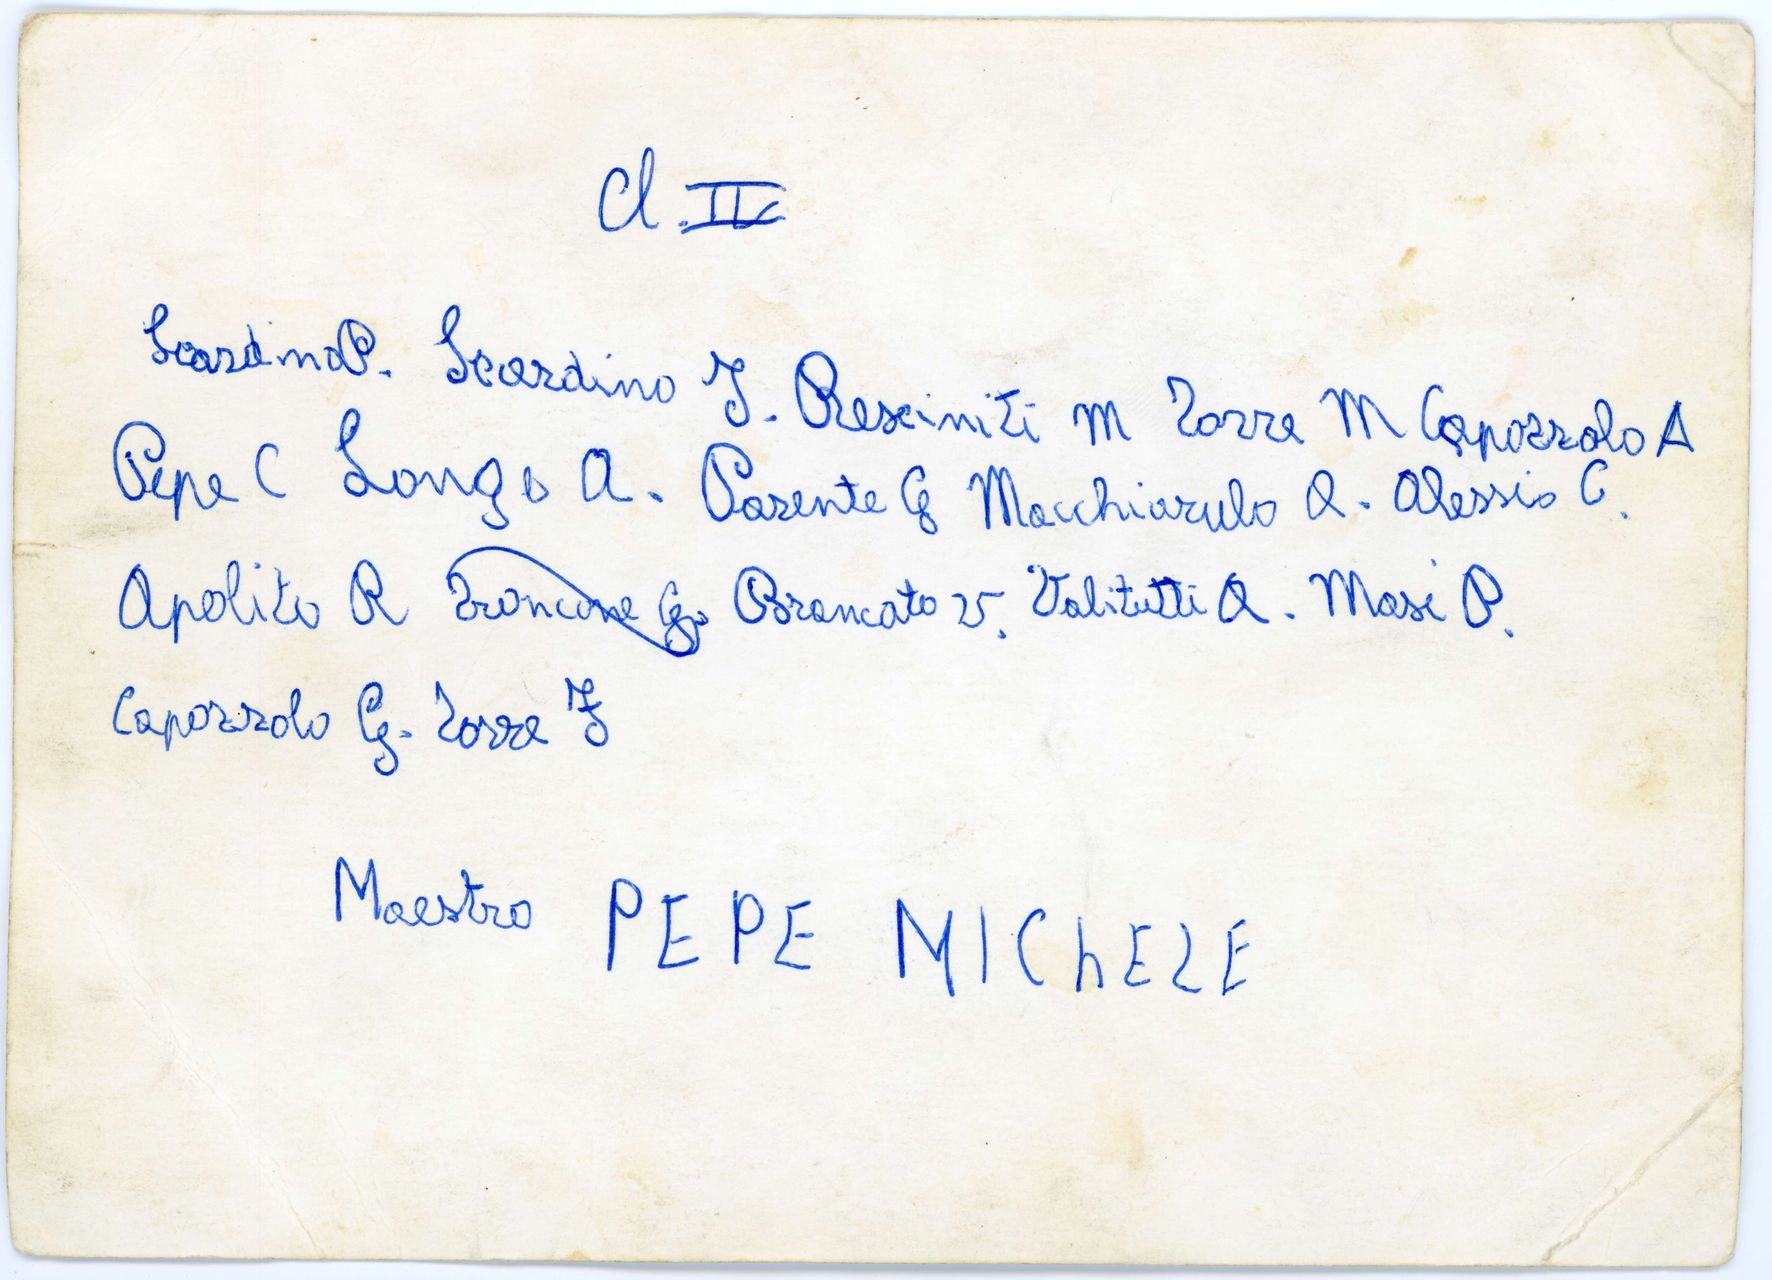 Cl. IV
Scardino P. Scardino F. Resciniti M Torre M Capozzolo A
Pepe C Longo A. Parente G Macchiarulo A. Alessio C.
Apolito R Troncone G. Brancato V. Valitutti A. Masi P.
Capozzolo G. Torre F
Maestro PEPE MIChELE